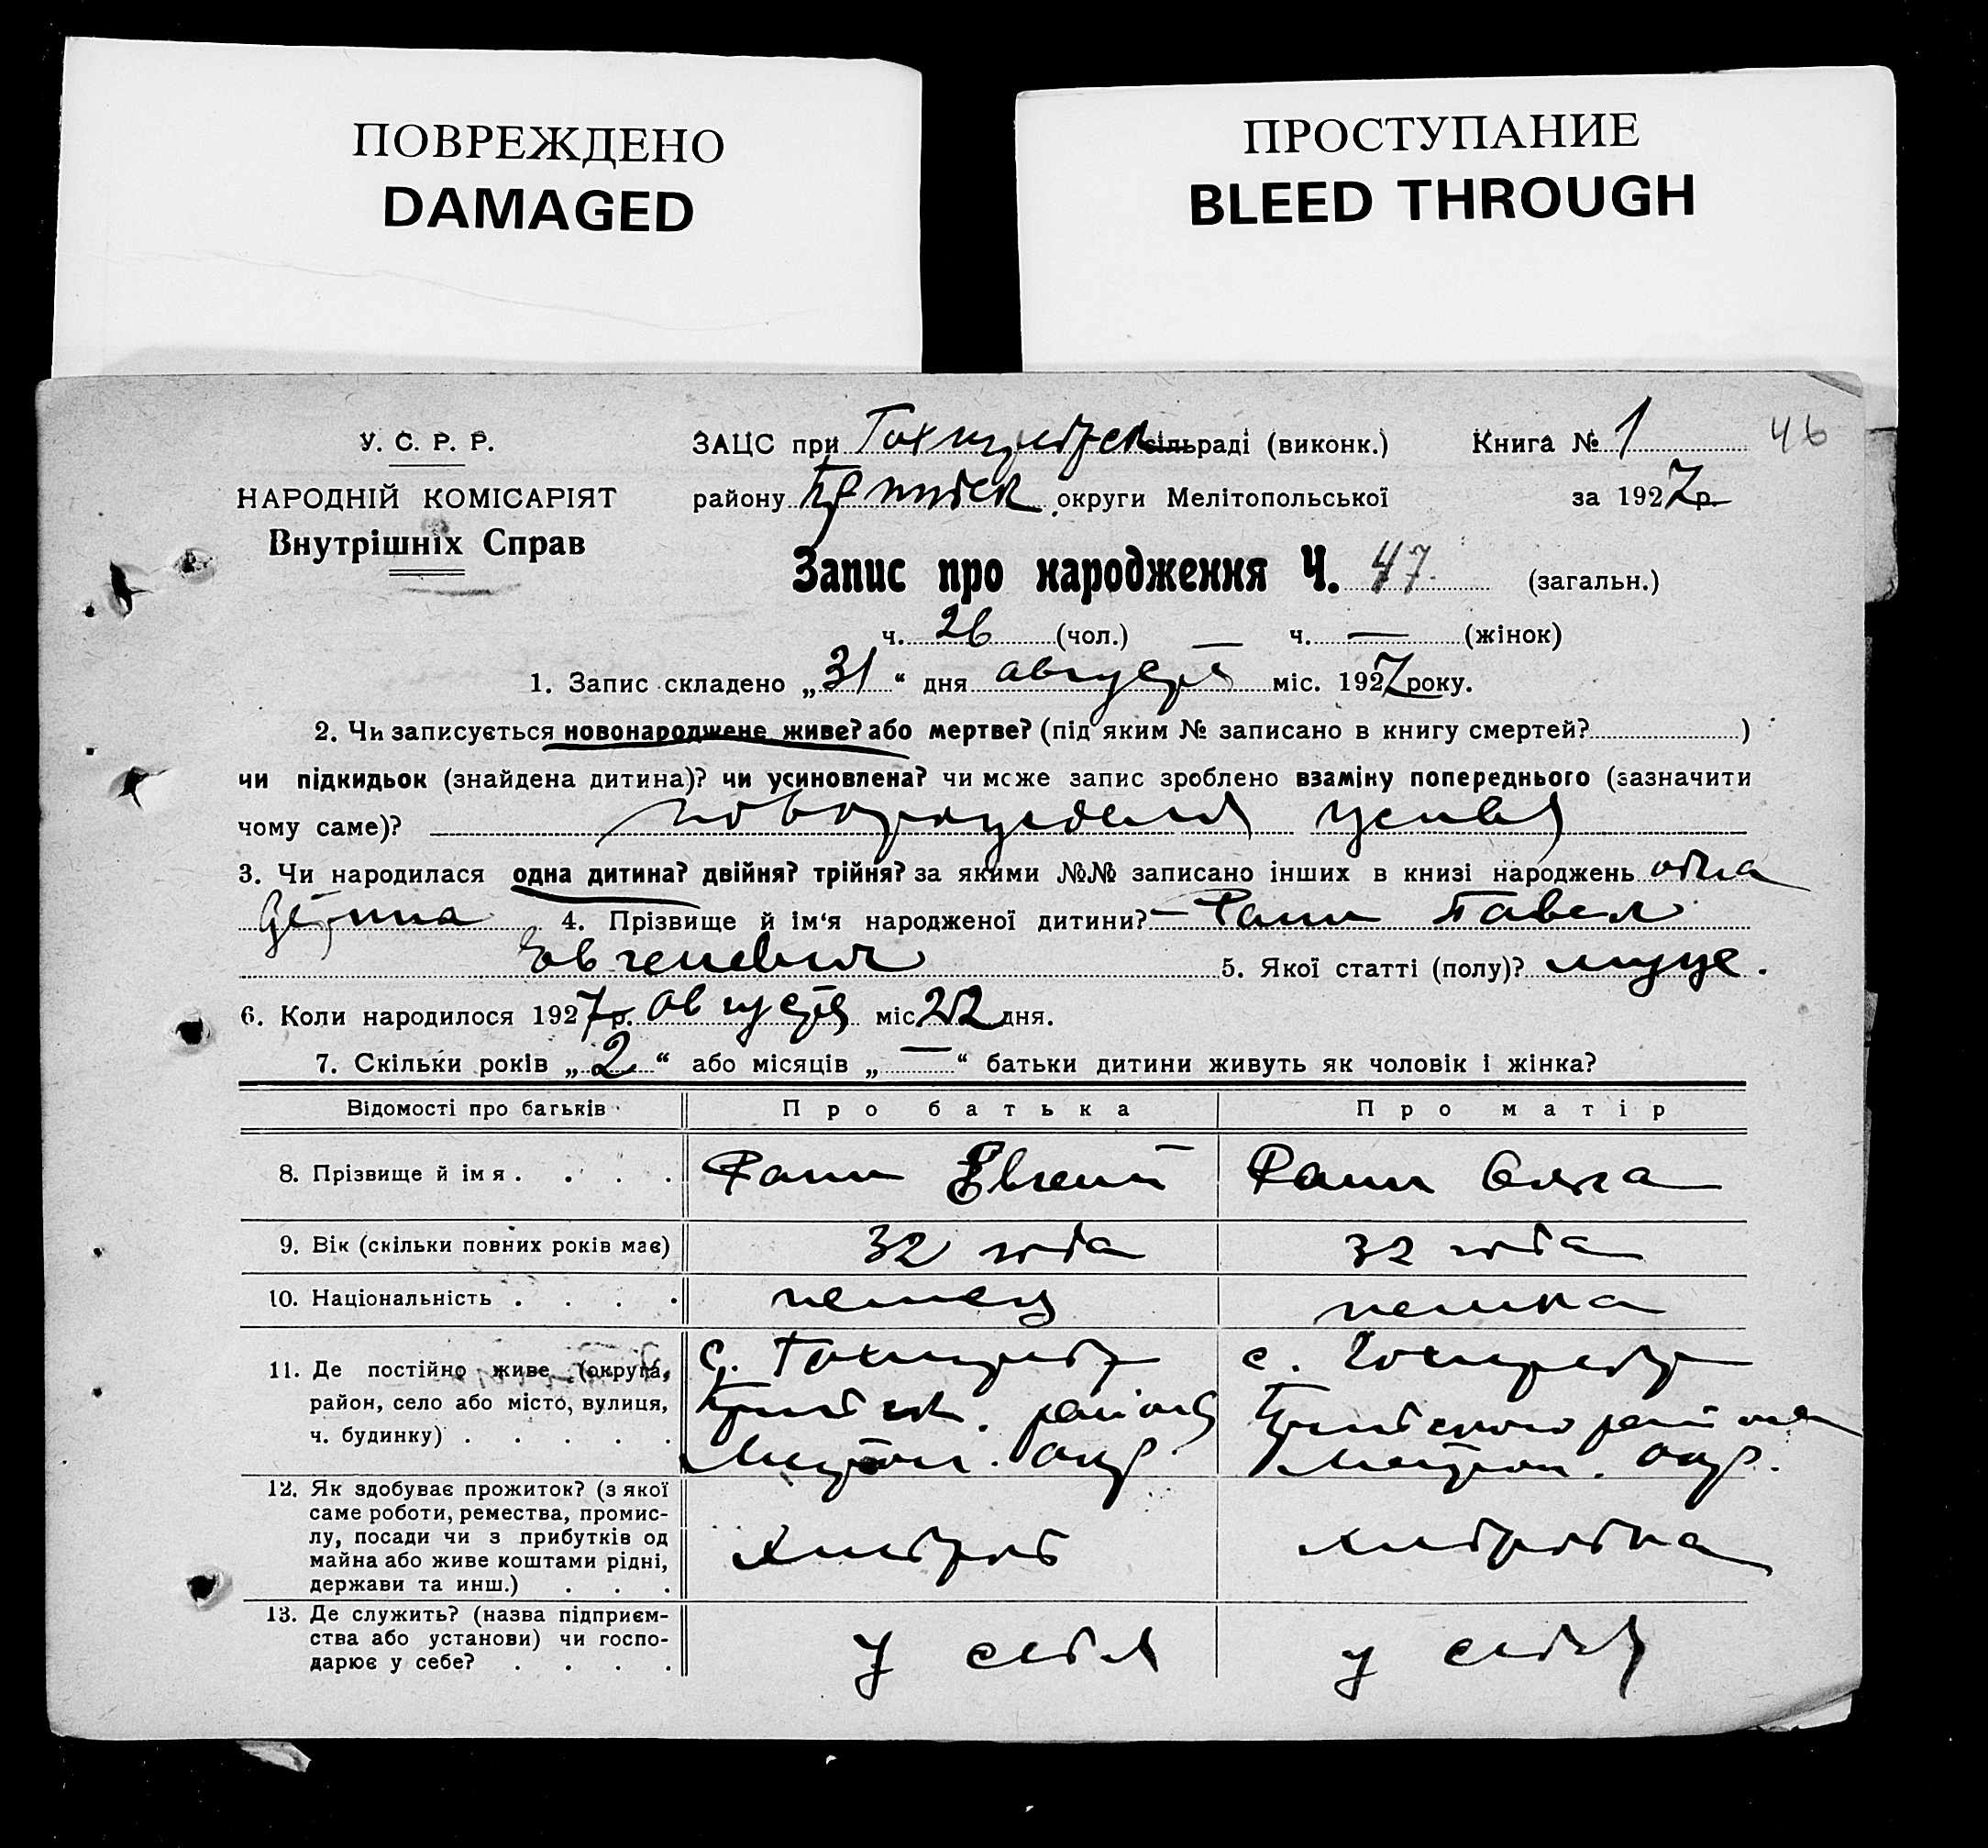 ПОВРЕЖДЕНО
DAMAGED
ПРОСТУПАНИЕ
BLEED THROUGH
У. С. Р. Р.
НАРОДНІЙ КОМІСАРІЯТ
Внутрішніх Справ
ЗАЦС при сільраді (виконк.) Книга № 1 46
району округи Мелітопольської за 1927 р.
Запис про народження Ч. 47 (загальн.)
ч. 26 (чол.) ч. — (жінок)
1. Запис складено „31“ дня августа міс. 1927 року.
2. Чи записується новонароджене живе? або мертве? (під яким № записано в книгу смертей? )
чи підкидьок (знайдена дитина)? чи усиновлена? чи може запис зроблено взаміну попереднього (зазначити
чому саме)?
3. Чи народилася одна дитина? двійня? трійня? за якими №№ записано інших в книзі народжень одна
4. Прізвище й ім‘я народженої дитини? — Фаш Павел
Евгеневич 5. Якої статті (полу)? муже.
6. Коли народилося 1927 р. августа міс 22 дня.
7. Скільки років „2“ або місяців „—“ батьки дитини живуть як чоловік і жінка?
Відомості про батьків Про батька Про матір
8. Прізвище й ім я . . . . Фаш Евгений Фаш
9. Вік (скільки повних років має) 32 года 32 года
10. Національність . . . . немец немка
11. Де постійно живе (округа,
район, село або місто, вулиця,
ч. будинку) . . . . .
с.
района
окр.
с.
района
окр.
12. Як здобуває прожиток? (з якої
саме роботи, ремества, промис-
лу, посади чи з прибутків од
майна або живе коштами рідні,
держави та инш.) . . .
хлебороб
хлеборобка
13. Де служить? (назва підприєм-
ства або установи) чи госпо-
дарює у себе? . . . .
у себя
у себя